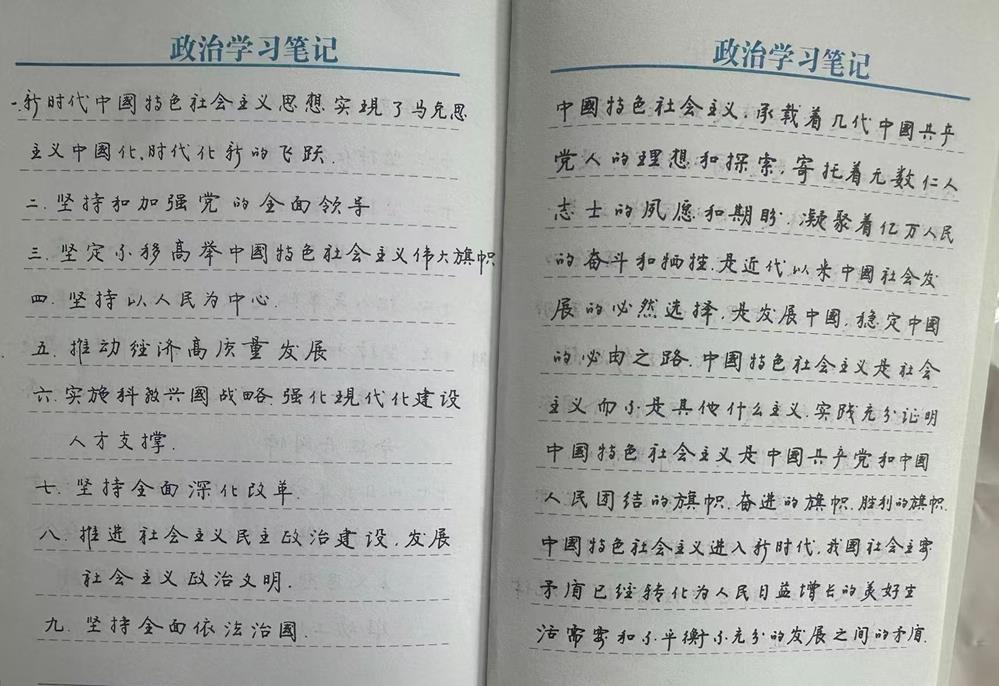 政治学习笔记
一.新时代中國特色社会主义思想实现了马克思
主义中國化、时代化新的飞跃.
二.坚持和加强党的全面领导
三.坚定不移高举中國特色社会主义伟大旗帜
四.坚持以人民为中心.
五.推动经济高质量发展
六.实施科教兴國战略 强化现代化建设
人才支撑.
七.坚持全面深化改革.
八.推进社会主义民主政治建设,发展
社会主义政治文明.
九.坚持全面依法治國.
政治学习笔记
中國特色社会主义,承载着几代中國共产
党人的理想和探索,寄托着无数仁人
志士的夙愿和期盼,凝聚着亿万人民
的奋斗和牺牲.是近代以来中國社会发
展的必然选择,是发展中國,稳定中國
的必由之路.中國特色社会主义是社会
主义而不是其他什么主义.实践充分证明
中國特色社会主义是中國共产党和中國
人民团结的旗帜.奋进的旗帜.胜利的旗帜.
中國特色社会主义进入新时代,我國社会主要
矛盾已经转化为人民日益增长的美好生
活需要和不平衡不充分的发展之间的矛盾.